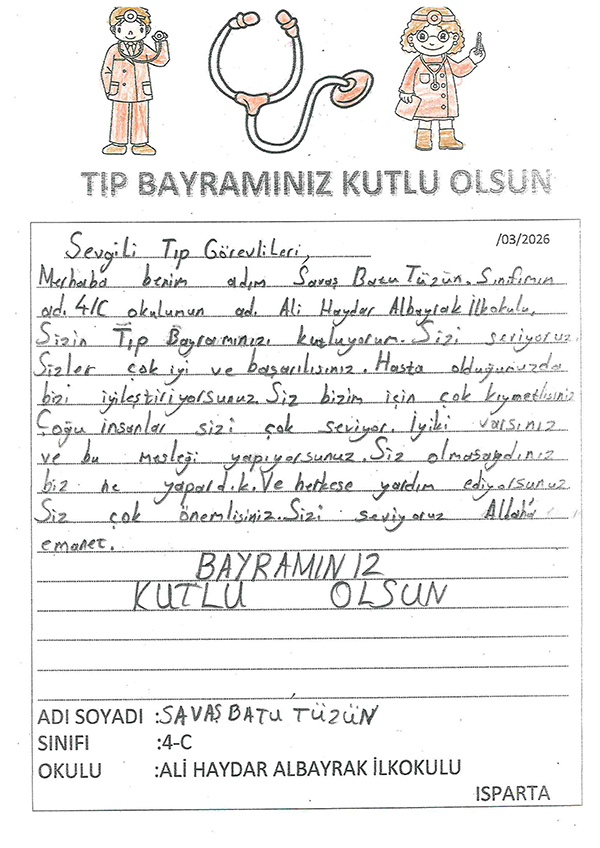 TIP BAYRAMINIZ KUTLU OLSUN
/03/2026
Sevgili Tıp Görevlileri,
Merhaba benim adım Savaş Batu Tüzün. Sınıfımın
ad. 4/C okulumun ad. Ali Haydar Albayrak İlkokulu.
Sizin Tıp Bayramınızı kutluyorum. Sizi seviyoruz.
Sizler çok iyi ve başarılısınız. Hasta olduğunuzda
bizi iyileştiriyorsunuz. Siz bizim için çok kıymetlisiniz
Çoğu insanlar sizi çok seviyor. İyiki varsınız
ve bu mesleği yapıyorsunuz. Siz olmasaydınız
biz ne yapard.k. Ve herkese yardım ediyorsunuz
Siz çok önemlisiniz. Sizi seviyoruz Allah'a
emanet.
BAYRAMINIZ
KUTLU OLSUN
ADI SOYADI :SAVAŞ BATU TÜZÜN
SINIFI :4-C
OKULU :ALİ HAYDAR ALBAYRAK İLKOKULU
ISPARTA